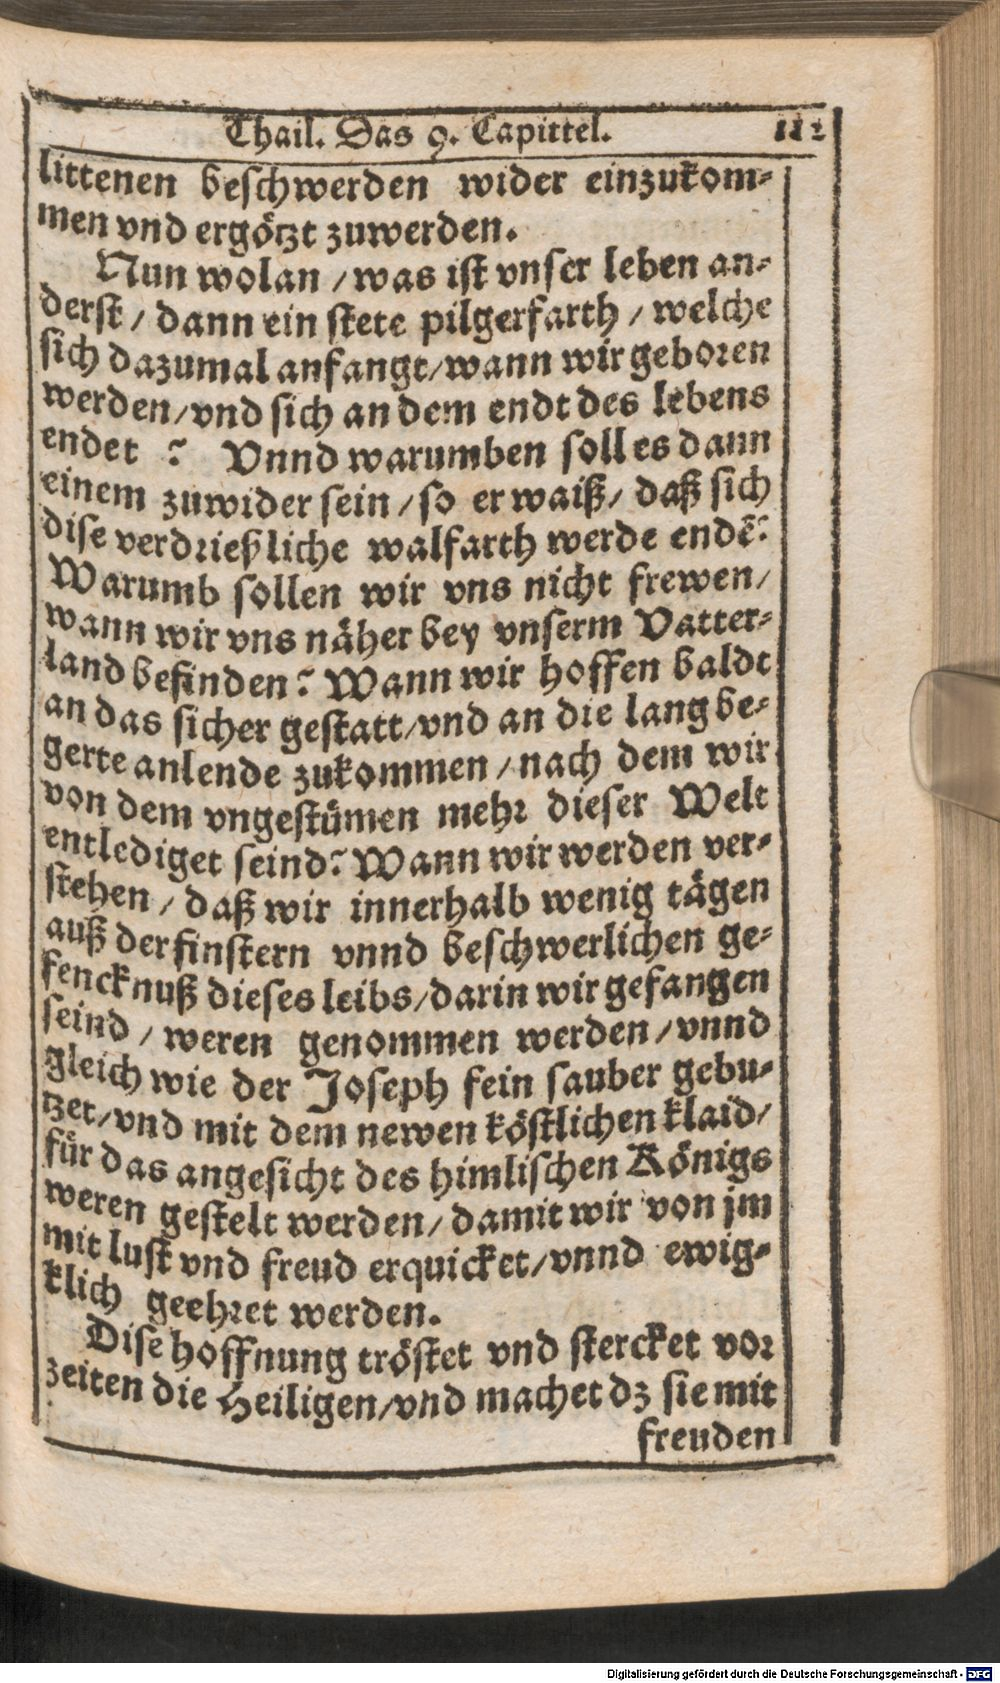 Thail. Das 9. Capittel. 111
littenen beschwerden wider einzukom-
men vnd ergötzt zuwerden.
Nun wolan / was ist vnser leben an-
derst / dann ein stete pilgerfarth / welche
sich dazumal anfangt / wann wir geboren
werden / vnd sich an dem endt des lebens
endet ? Vnnd warumben soll es dann
einem zuwider sein / so er waiß / daß sich
dise verdrießliche walfarth werde endē?
Warumb sollen wir vns nicht frewen /
wann wir vns näher bey vnserm Vatter-
land befinden? Wann wir hoffen baldt
an das sicher gestatt / vnd an die lang be-
gerte anlende zukommen / nach dem wir
von dem vngestümen mehr dieser Welt
entlediget seind? Wann wir werden ver-
stehen / daß wir innerhalb wenig tägen
auß der finstern vnnd beschwerlichen ge-
fencknuß dieses leibs / darin wir gefangen
seind / weren genommen werden / vnnd
gleich wie der Joseph fein sauber gebu-
tzet / vnd mit dem newen köstlichen klaid /
für das angesicht des himlischen Königs
weren gestelt werden / damit wir von jm
mit lust vnd freud erquicket / vnnd ewig-
klich geehret werden.
Dise hoffnung tröstet vnd stercket vor
zeiten die Heiligen / vnd machet dz sie mit
freuden
Digitalisierung gefördert durch die Deutsche Forschungsgemeinschaft - DFG